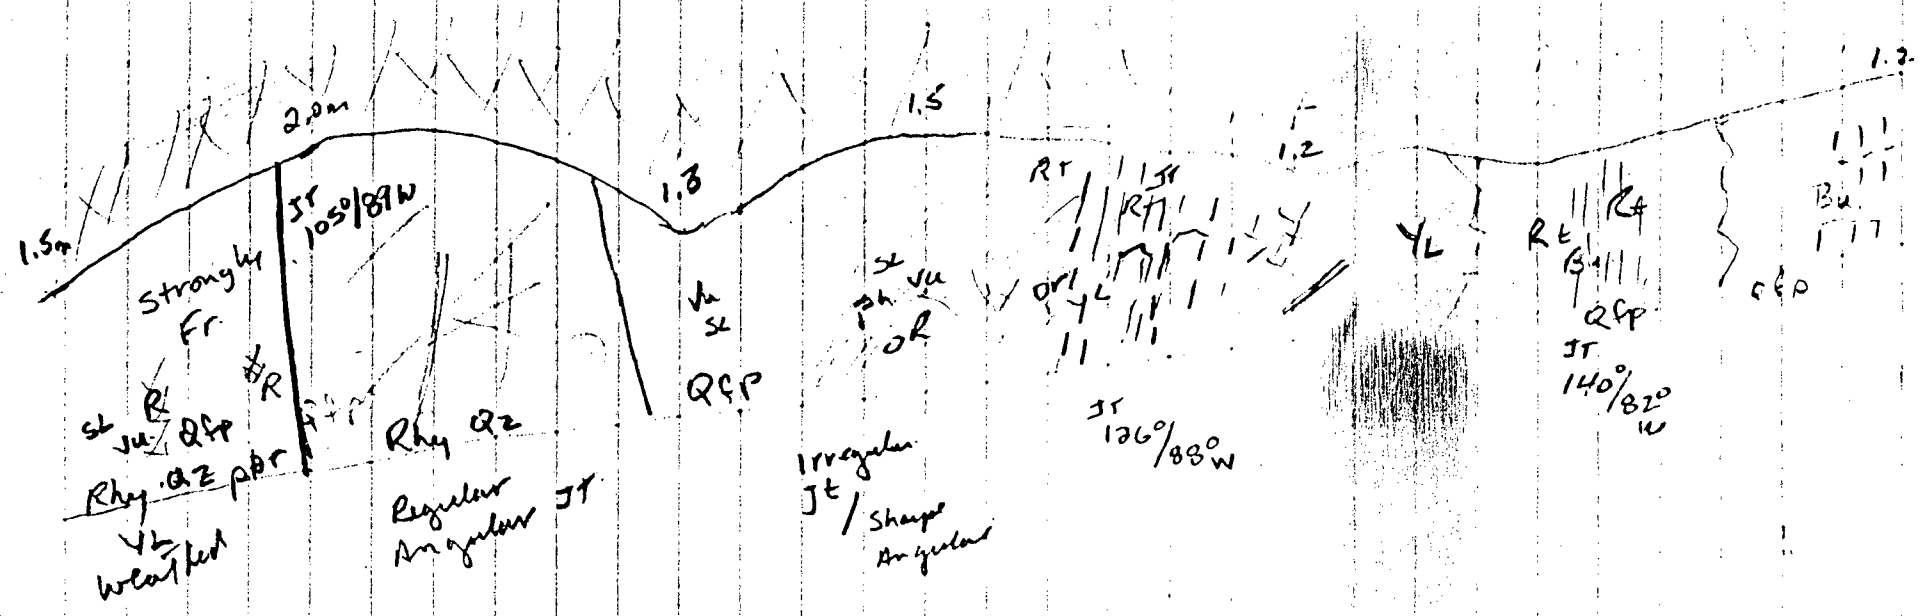 1.5m
2.0m
1.3
1.5
1.2
1.2
JT
105°/89W
Strongly
Fr.
R
R
SL
vu. Qfp
Rhy. QZ ppr
YL
Weathed
Qfp
Rhy QZ
Regular
Angular JT
vu
SL
QFP
SL
vu
OR
Irregular
Jt
Sharpe
Angular
RT
JT
Rt
or
YL
JT
126°/88°W
YL
Rt
Rt
Qfp
JT
140°/82°
W
Qfp
Bu